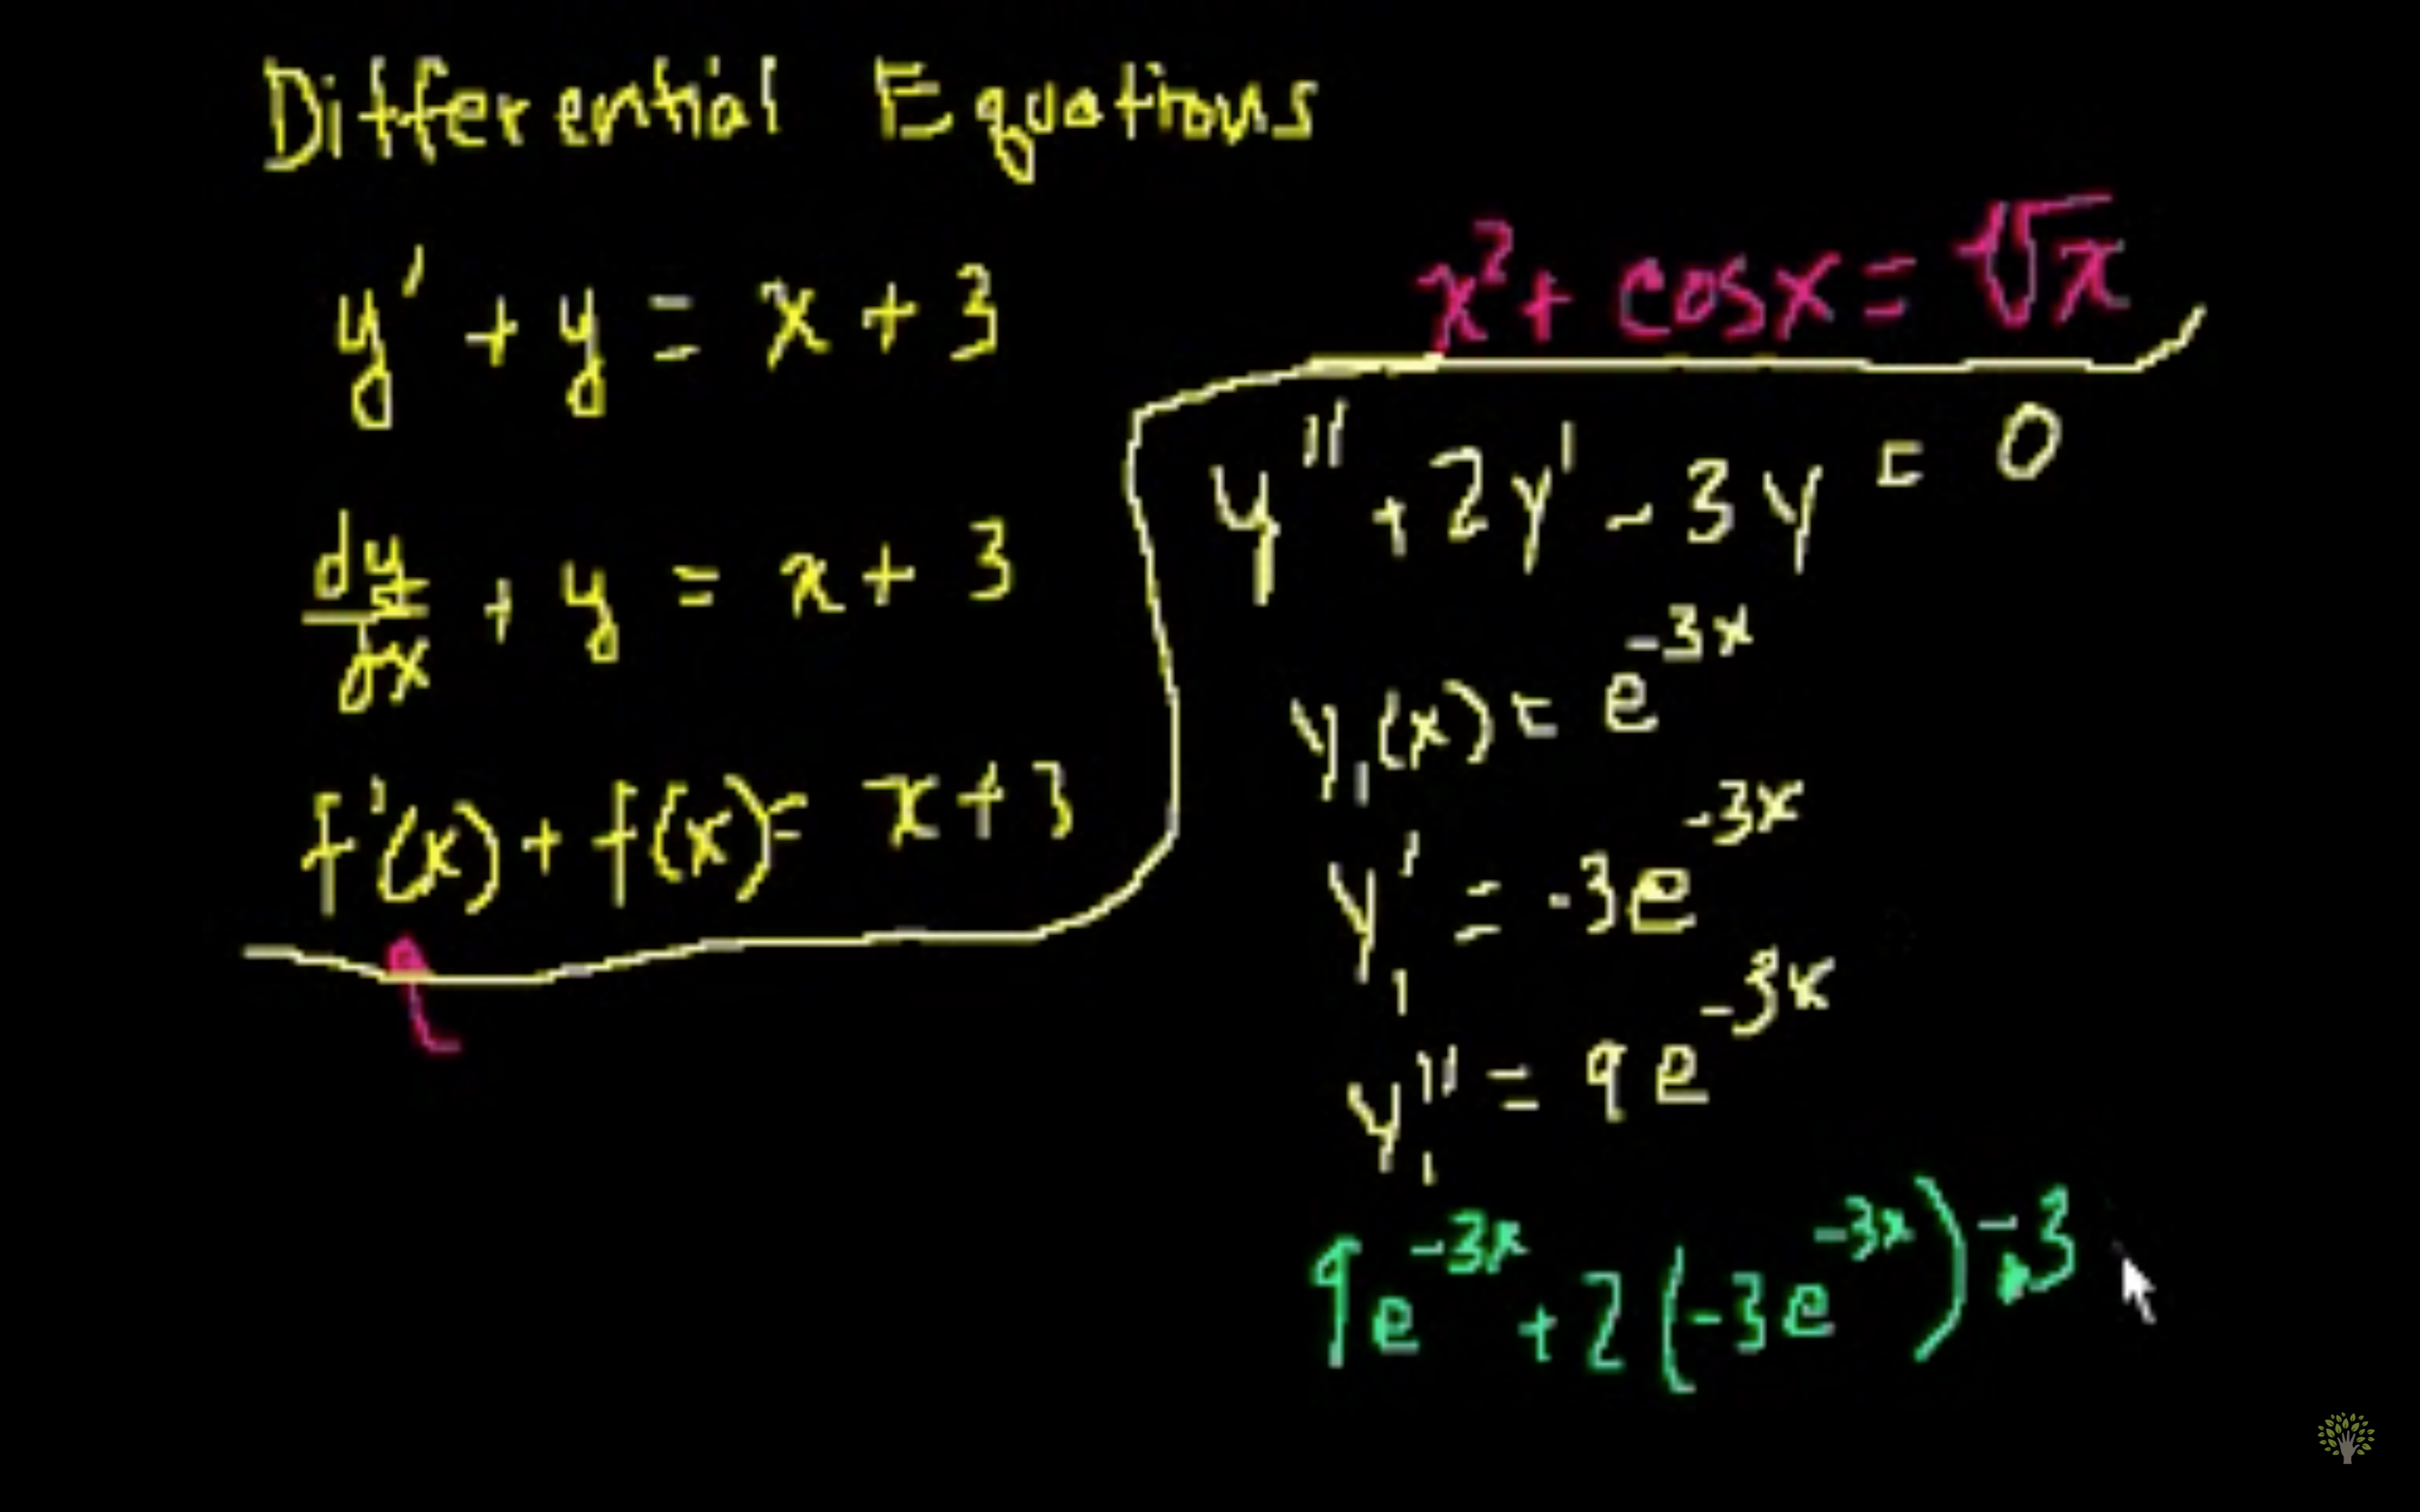 Differential Equations
y' + y = x + 3
dy/dx + y = x + 3
f'(x) + f(x) = x + 3
x² + cos x = √x
y'' + 2y' - 3y = 0
y₁(x) = e^(-3x)
y₁' = -3e^(-3x)
y₁'' = 9e^(-3x)
9e^(-3x) + 2(-3e^(-3x)) - 3